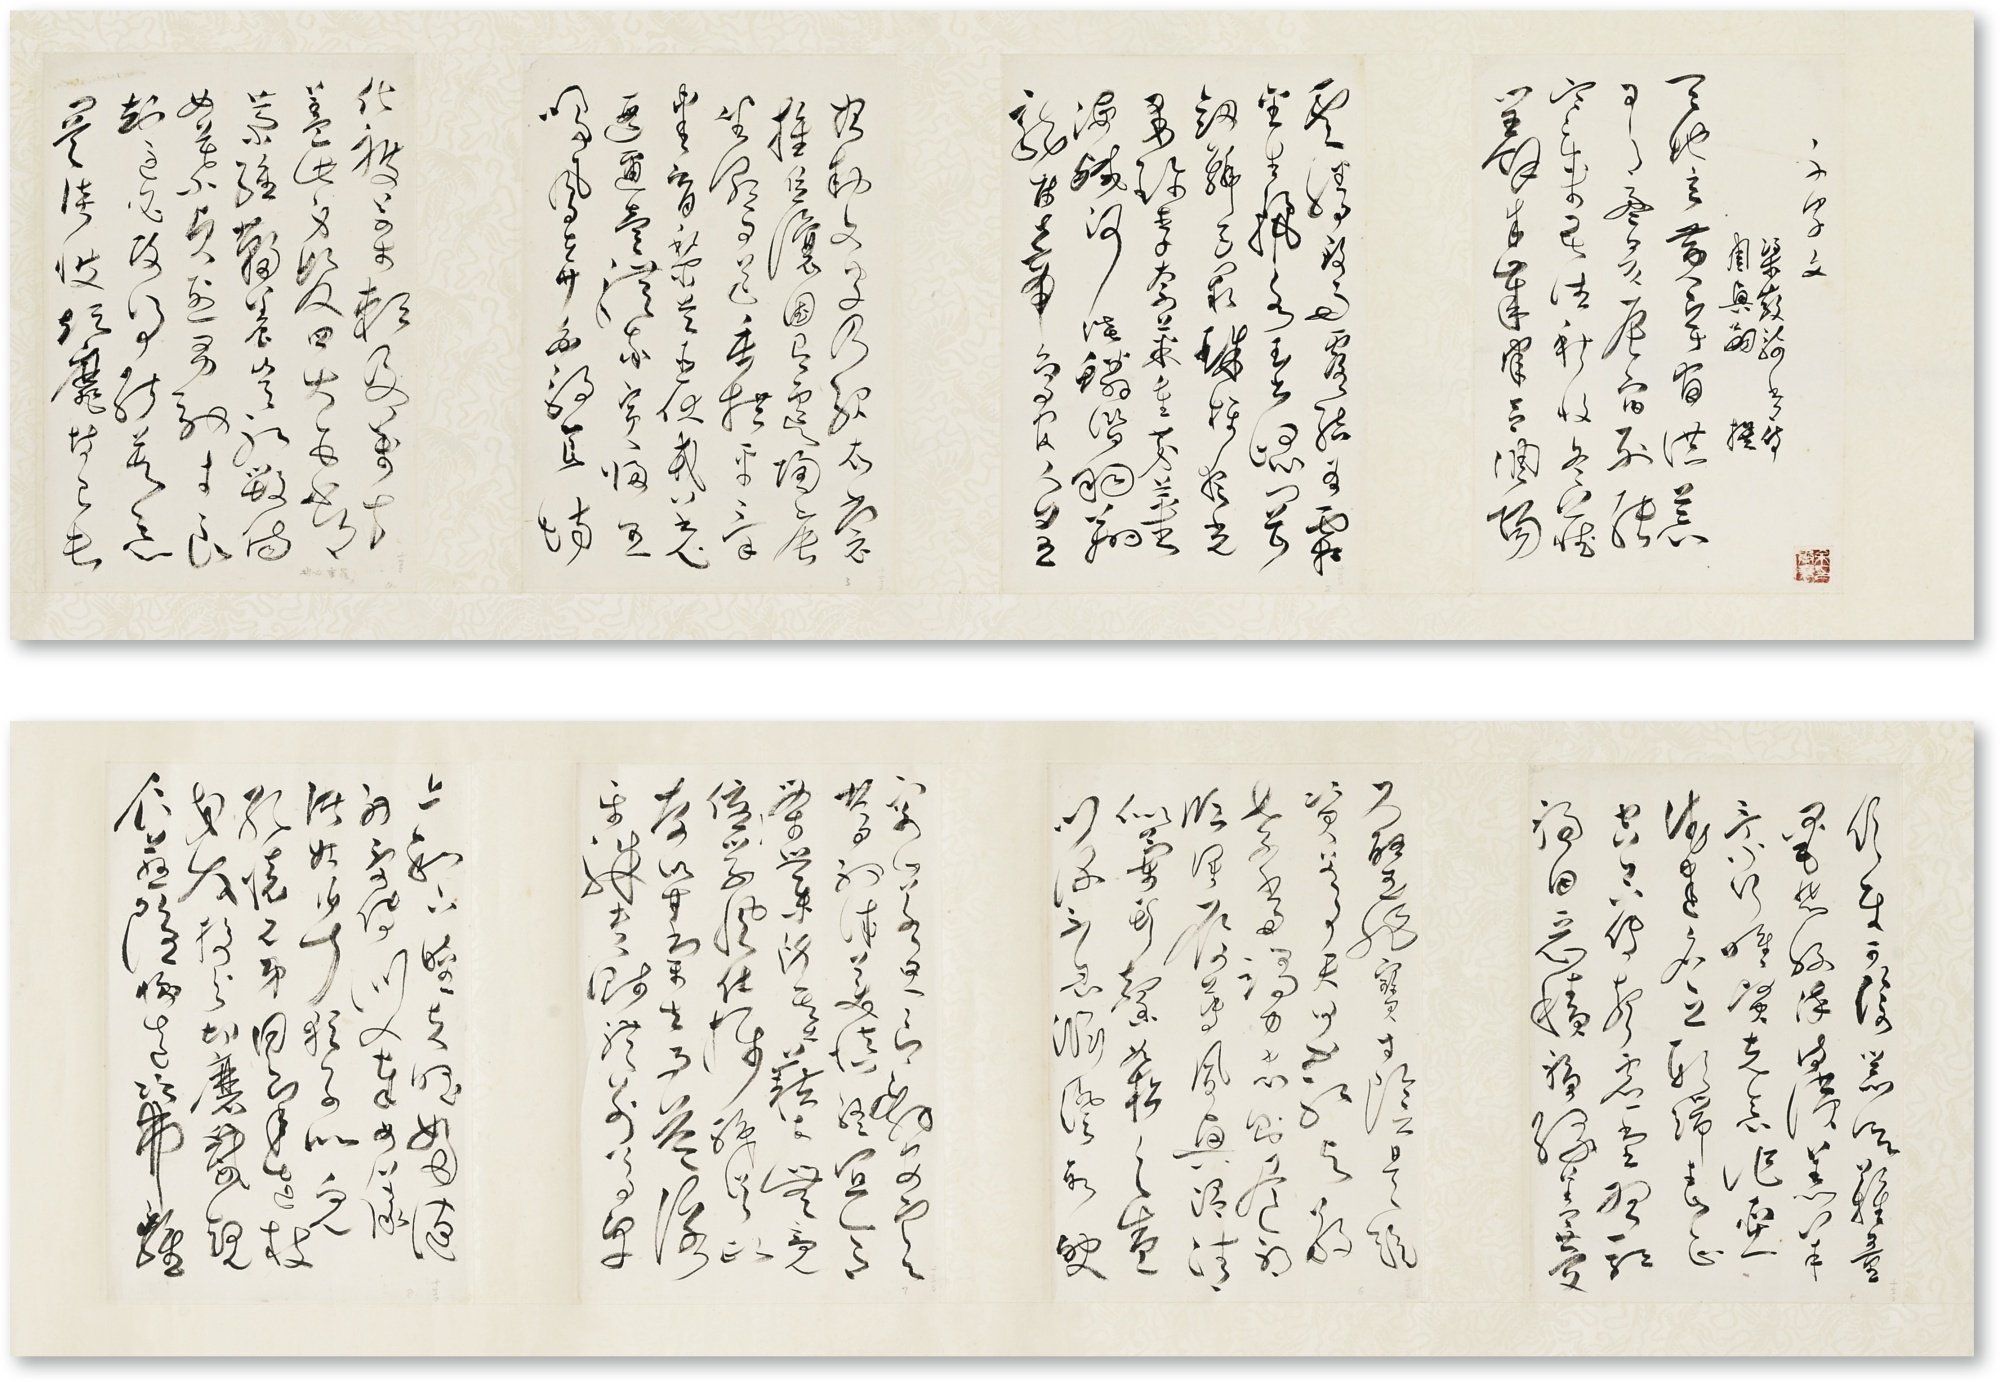 千字文
梁散騎常侍
周興嗣 撰
天地玄黃宇宙洪荒
日月盈昃辰宿列張
寒來暑往秋收冬藏
閏餘成歲律呂調陽
雲騰致雨露結為霜
金生麗水玉出崑岡
劍號巨闕珠稱夜光
果珍李柰菜重芥薑
海鹹河淡鱗潛羽翔
龍師火帝鳥官人皇
始制文字乃服衣裳
推位讓國有虞陶唐
坐朝問道垂拱平章
愛育黎首臣伏戎羌
遐邇壹體率賓歸王
鳴鳳在竹白駒食場
化被草木賴及萬方
蓋此身髮四大五常
恭惟鞠養豈敢毀傷
女慕貞潔男效才良
知過必改得能莫忘
罔談彼短靡恃己長
信使可覆器欲難量
墨悲絲染詩讚羔羊
景行維賢克念作聖
德建名立形端表正
空谷傳聲虛堂習聽
禍因惡積福緣善慶
尺璧非寶寸陰是競
資父事君曰嚴與敬
孝當竭力忠則盡命
臨深履薄夙興溫凊
似蘭斯馨如松之盛
川流不息淵澄取映
容止若思言辭安定
篤初誠美慎終宜令
榮業所基籍甚無竟
優學登仕攝職從政
存以甘棠去而益詠
樂殊貴賤禮別尊卑
上和下睦夫唱婦隨
外受傅訓入奉母儀
諸姑伯叔猶子比兒
孔懷兄弟同氣連枝
交友投分切磨箴規
仁慈隱惻造次弗離